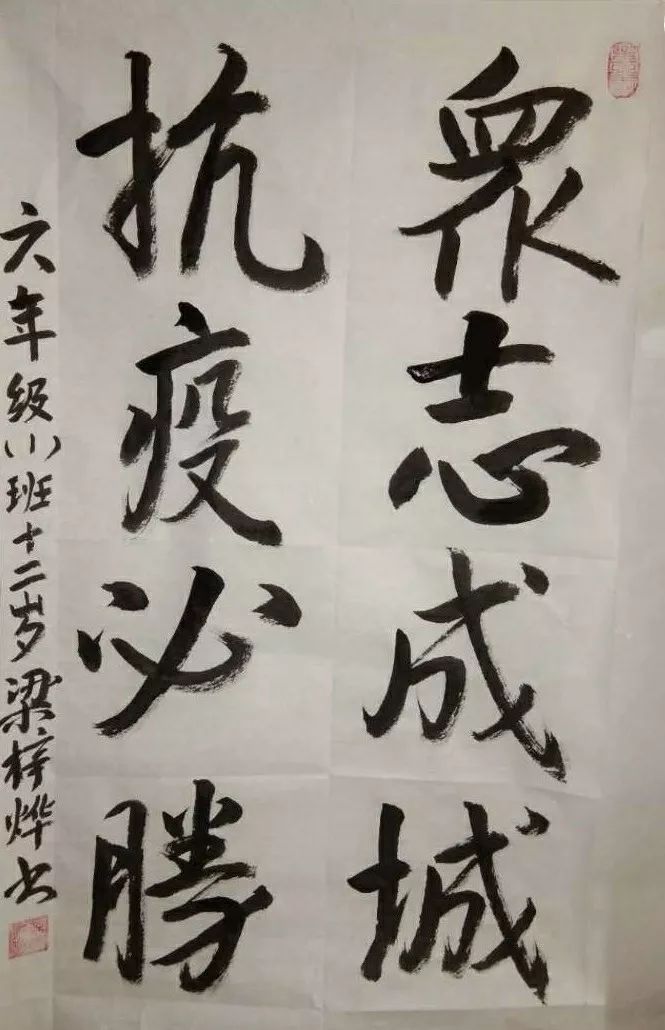 眾志成城
抗疫必勝
六年级(1)班十二岁梁梓烨书